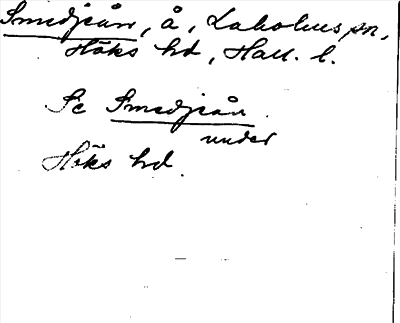 Smedjeån, å, Laholms sn,
Höks hd, Hall. l.
Se Smedjeån
under
Höks hd.